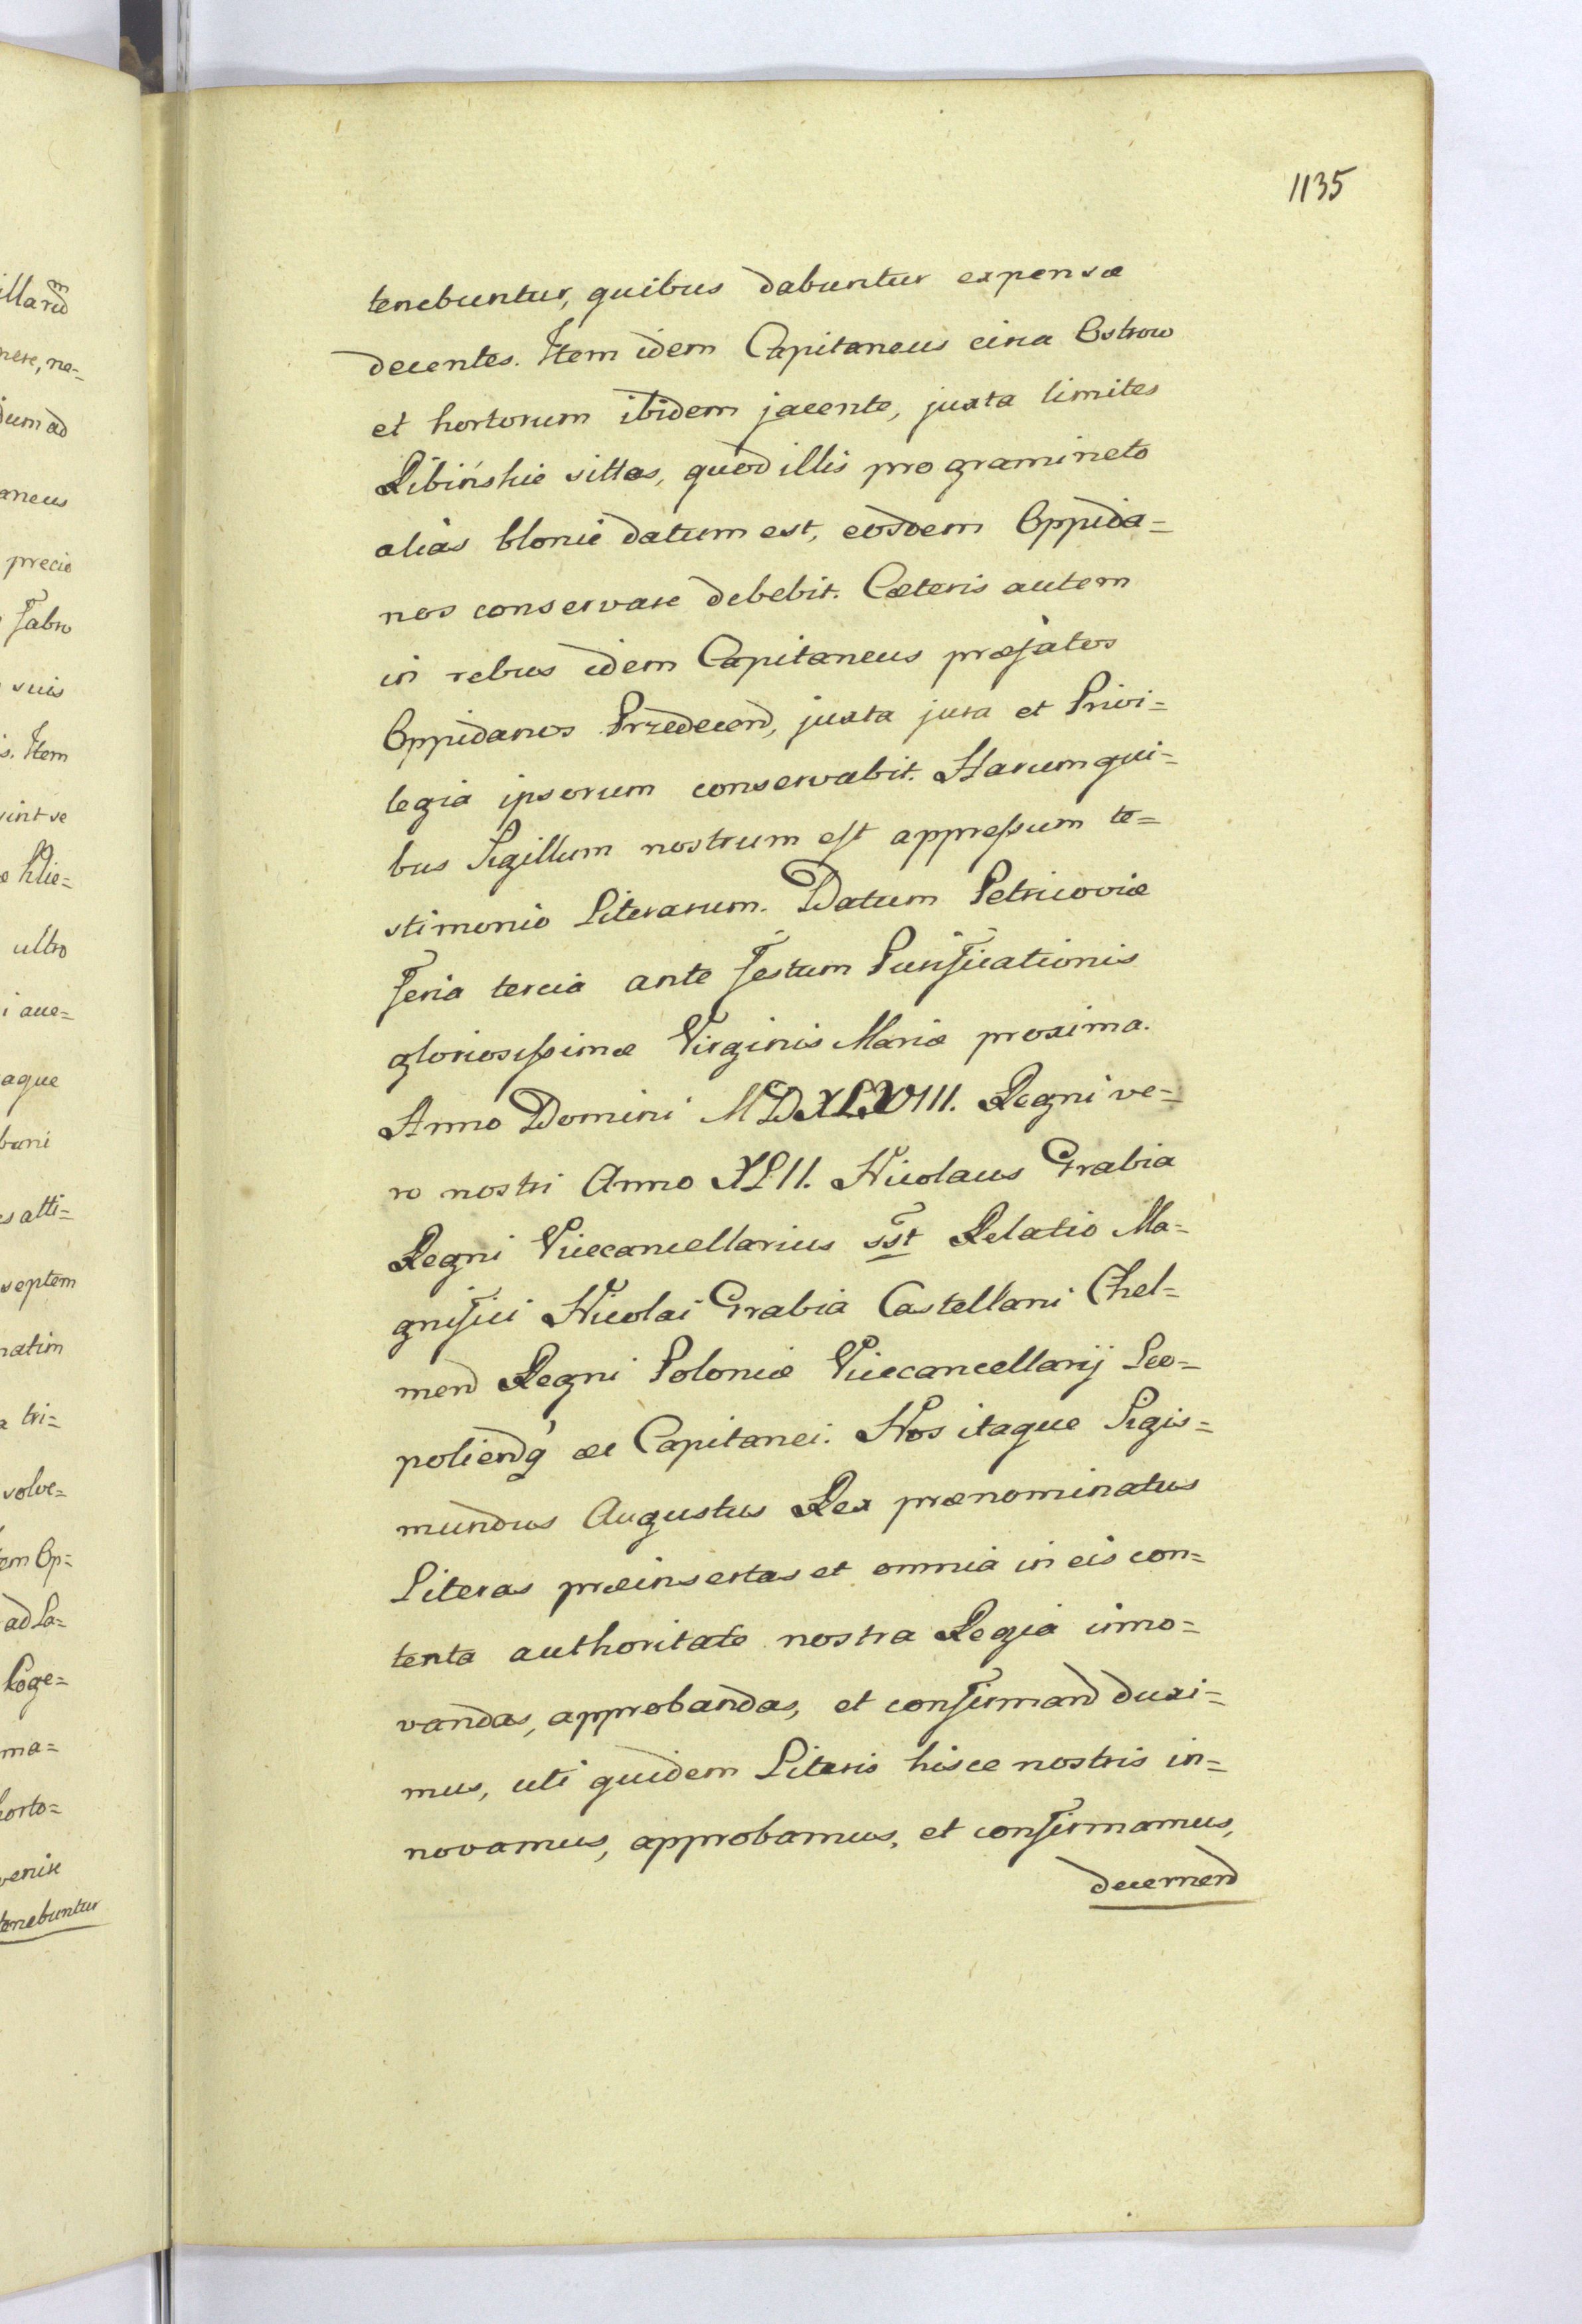 1135
tenebuntur, quibus dabuntur expensæ
decentes. Item idem Capitaneus circa Ostrow
et hortorum ibidem jacente, juxta limites
Ribińskie sittas, quod illis pro gramineto
alias blonie datum est, eosdem Oppida=
nos conservare debebit. Cæteris autem
in rebus idem Capitaneus præfatos
Oppidanos Przedecend, juxta jura et Privi=
legia ipsorum conservabit. Harum qui=
bus Sigillum nostrum est appressum te=
stimonio Literarum. Datum Petricoviæ
Feria tercia ante Festum Purificationis
gloriosissimæ Virginis Mariæ proxima.
Anno Domini MDXLVIII. Regni ve=
ro nostri Anno XLII. Nicolaus Grabia
Regni Vicecancellarius sst Relatio Ma=
gnifici Nicolai Grabia Castellani Chel=
mend Regni Poloniæ Vicecancellarij Leo=
poliendq ac Capitanei. Nos itaque Sigis=
mundus Augustus Rex prænominatus
Literas præinsertas et omnia in eis con=
tenta authoritate nostra Regia inno=
vandas, approbandas, et confirmand duxi=
mus, uti quidem Literis hisce nostris in=
novamus, approbamus, et confirmamus,
decernend
illard m
nere, ne=
dum ad
aneus
precio
Fabro
suis
s. Item
sint se
ultro
aque
septem
tri=
volve=
em Op=
ad La=
ma=
horto=
venire
tenebuntur